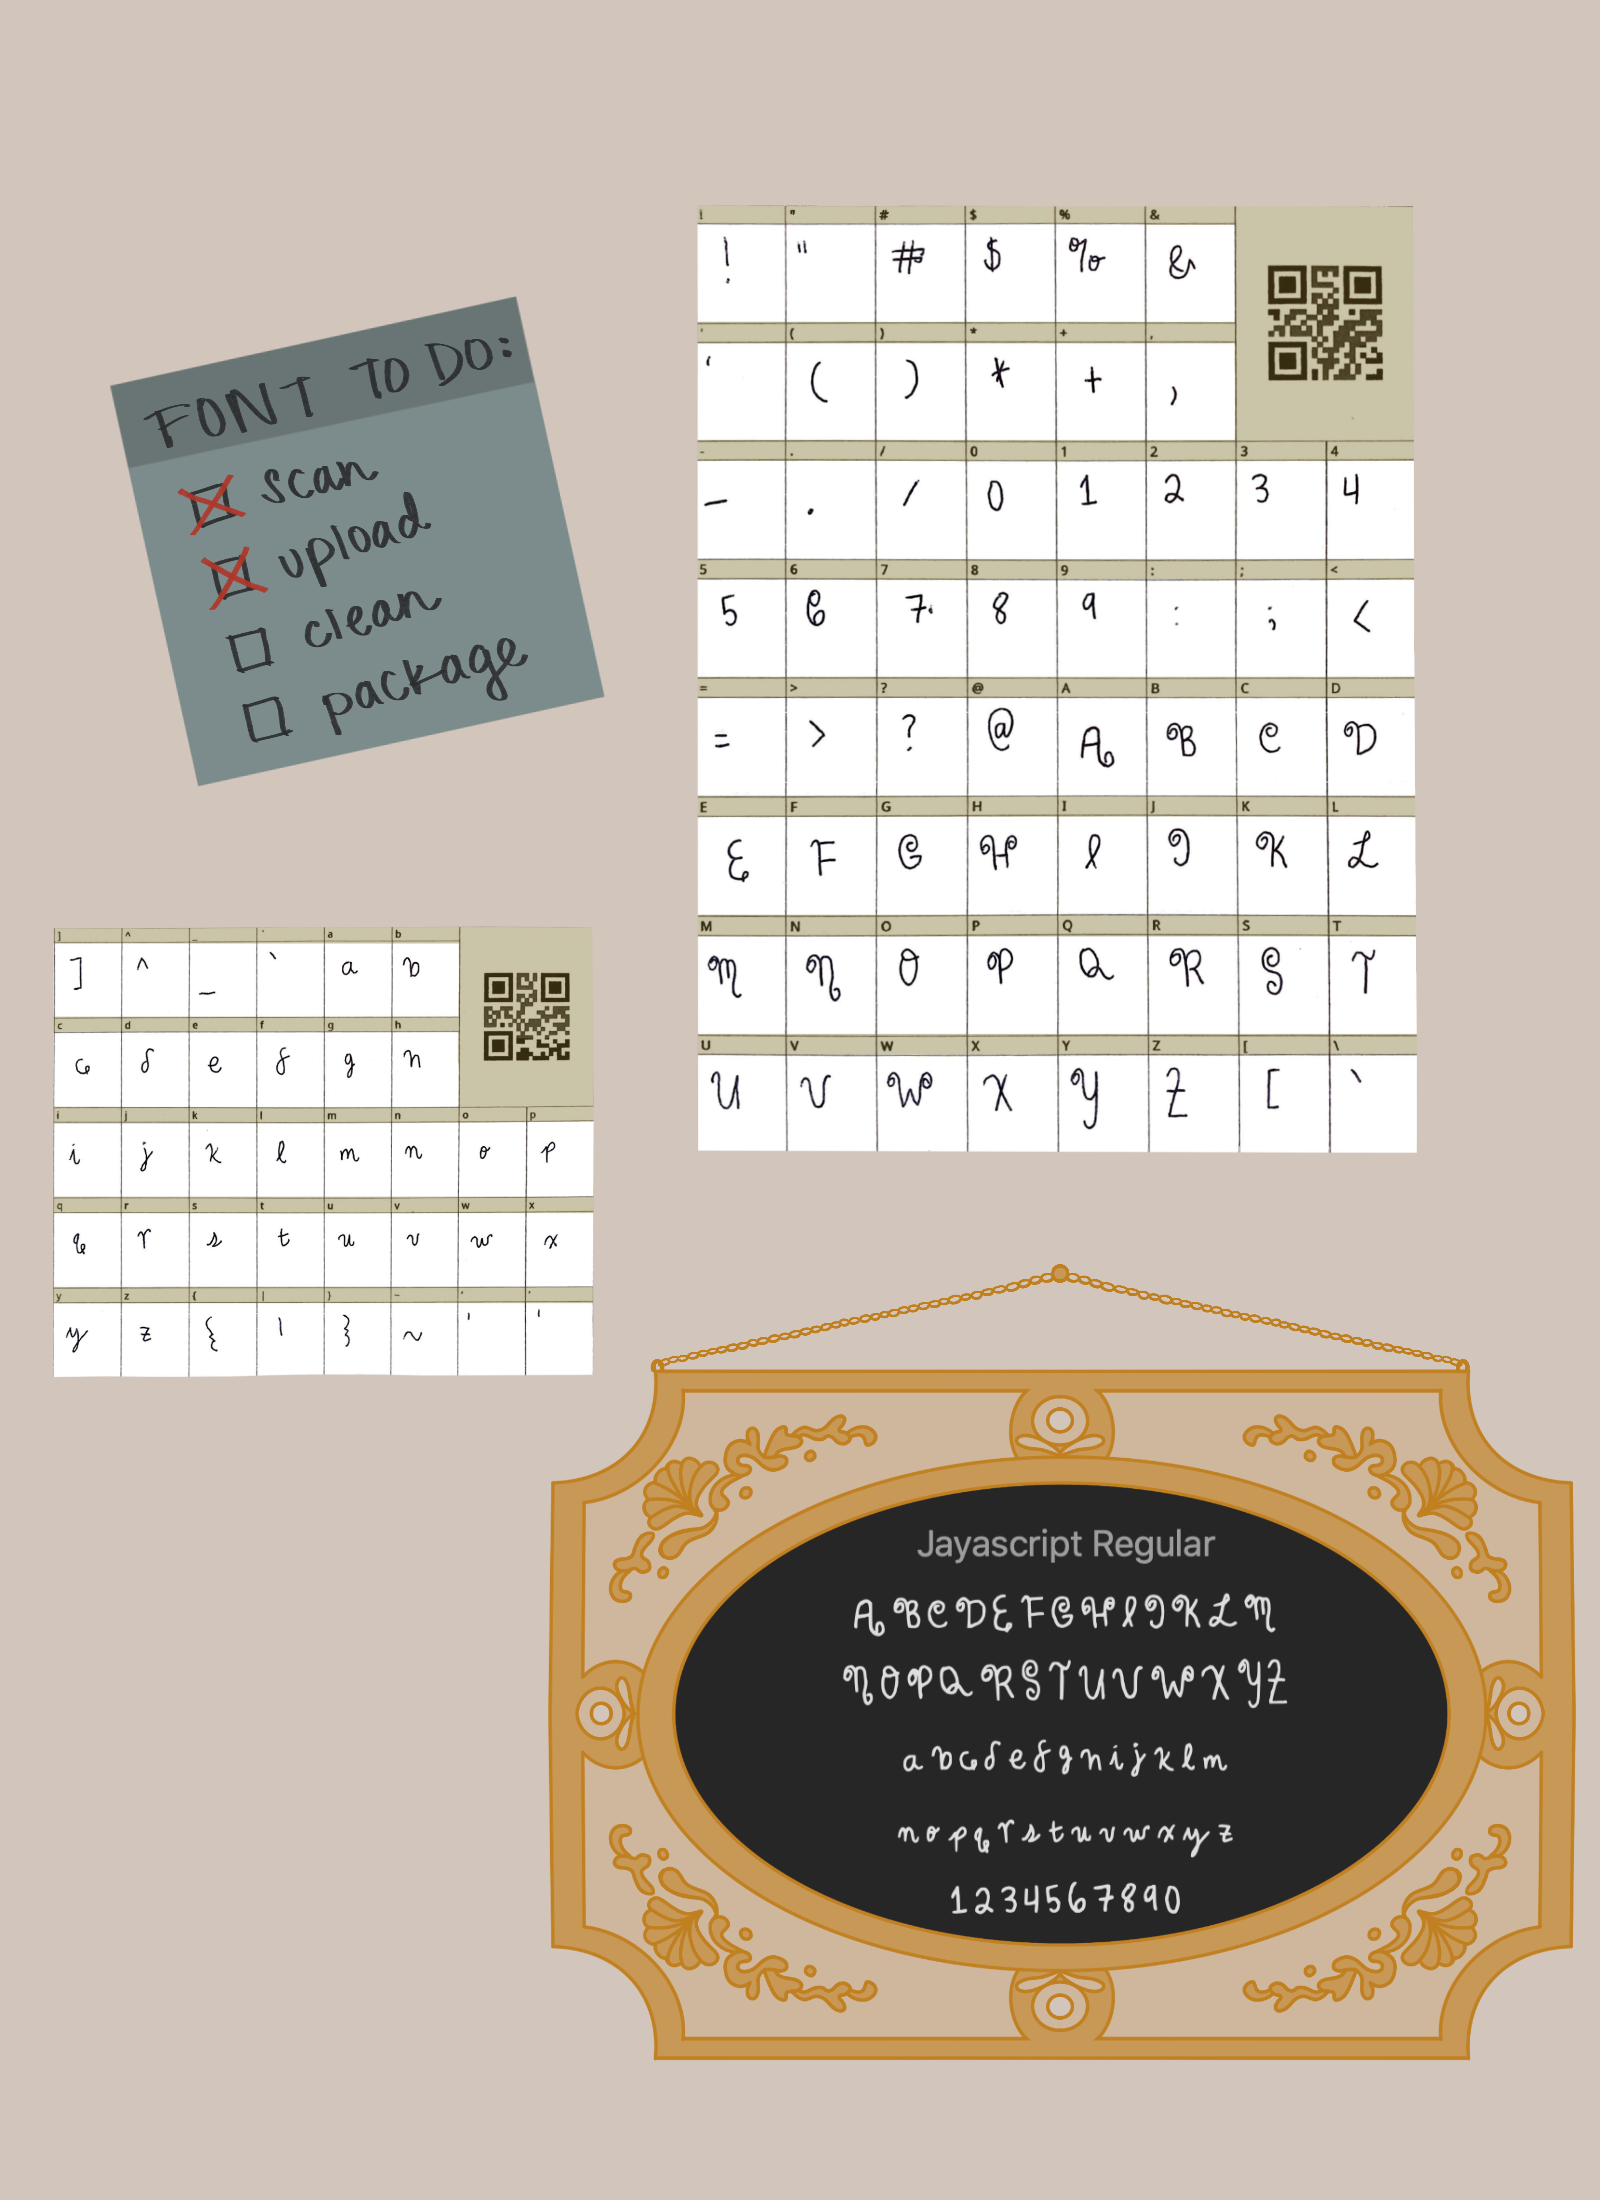 FONT TO DO:
scan
upload
clean
package
! " # $ % &
! " # $ % &
' ( ) * + ,
' ( ) * + ,
- . / 0 1 2 3 4
- . / 0 1 2 3 4
5 6 7 8 9 : ; <
5 6 7 8 9 : ; <
= > ? @ A B C D
= > ? @ A B C D
E F G H I J K L
E F G H I J K L
M N O P Q R S T
M N O P Q R S T
U V W X Y Z [ \
U V W X Y Z [ \
] ^ _ ` a b
] ^ _ ` a b
c d e f g h
c d e f g h
i j k l m n o p
i j k l m n o p
q r s t u v w x
q r s t u v w x
y z { | } ~ ' '
y z { | } ~ ' '
Jayascript Regular
A B C D E F G H I J K L M
N O P Q R S T U V W X Y Z
a b c d e f g h i j k l m
n o p q r s t u v w x y z
1 2 3 4 5 6 7 8 9 0